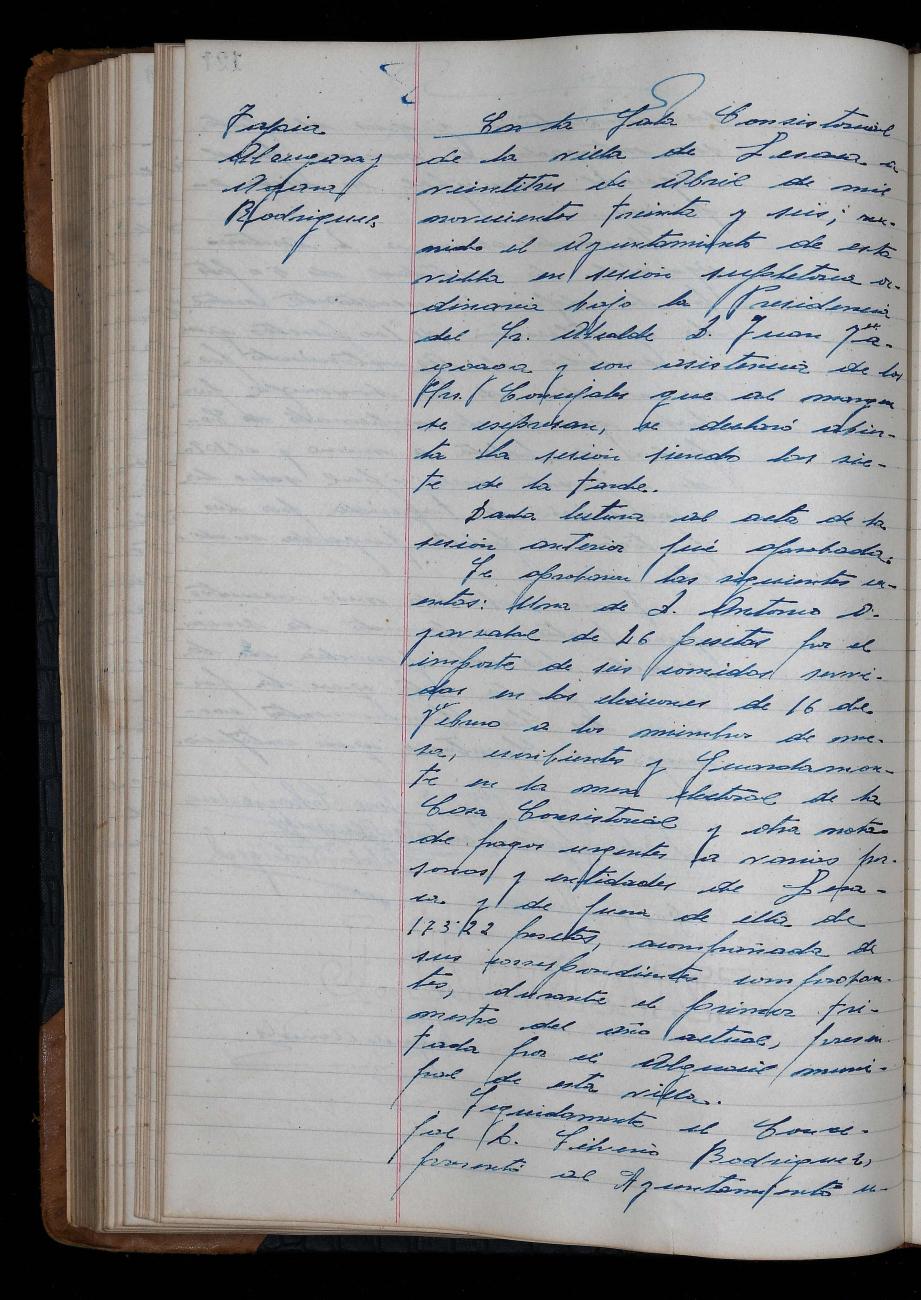 Tapia
Azcona
Rodriguez
En la Sala Consistorial
de la villa de Lesaca a
veintitres de Abril de mil
novecientos treinta y seis; reu-
nido el Ayuntamiento de esta
villa en sesión supletoria or-
dinaria bajo la Presidencia
del Sr. Alcalde D. Juan
y con asistencia de los
Srs. Concejales que al margen
se expresan, se declaró abier-
ta la sesión siendo las sie-
te de la tarde.
Dada lectura al acta de la
sesión anterior fué aprobada.
Se aprobaron las siguientes cu-
entas: Una de D. Antonio
de 26 pesetas por el
importe de seis comidas servi-
das en las elecciones de 16 de
Febrero a los miembros de me-
sa, escribientes y Guardamon-
te en la mesa electoral de la
Casa Consistorial y otra nota
de pagos urgentes a varias per-
sonas y entidades de Lesa-
ca y de fuera de ella de
173'22 pesetas, acompañada de
sus correspondientes comproban-
tes, durante el primer tri-
mestre del año actual, presen-
tada por el Alguacil muni-
pal de esta villa.
Seguidamente el Conce-
jal D. Silverio Rodriguez,
presentó al Ayuntamiento u-